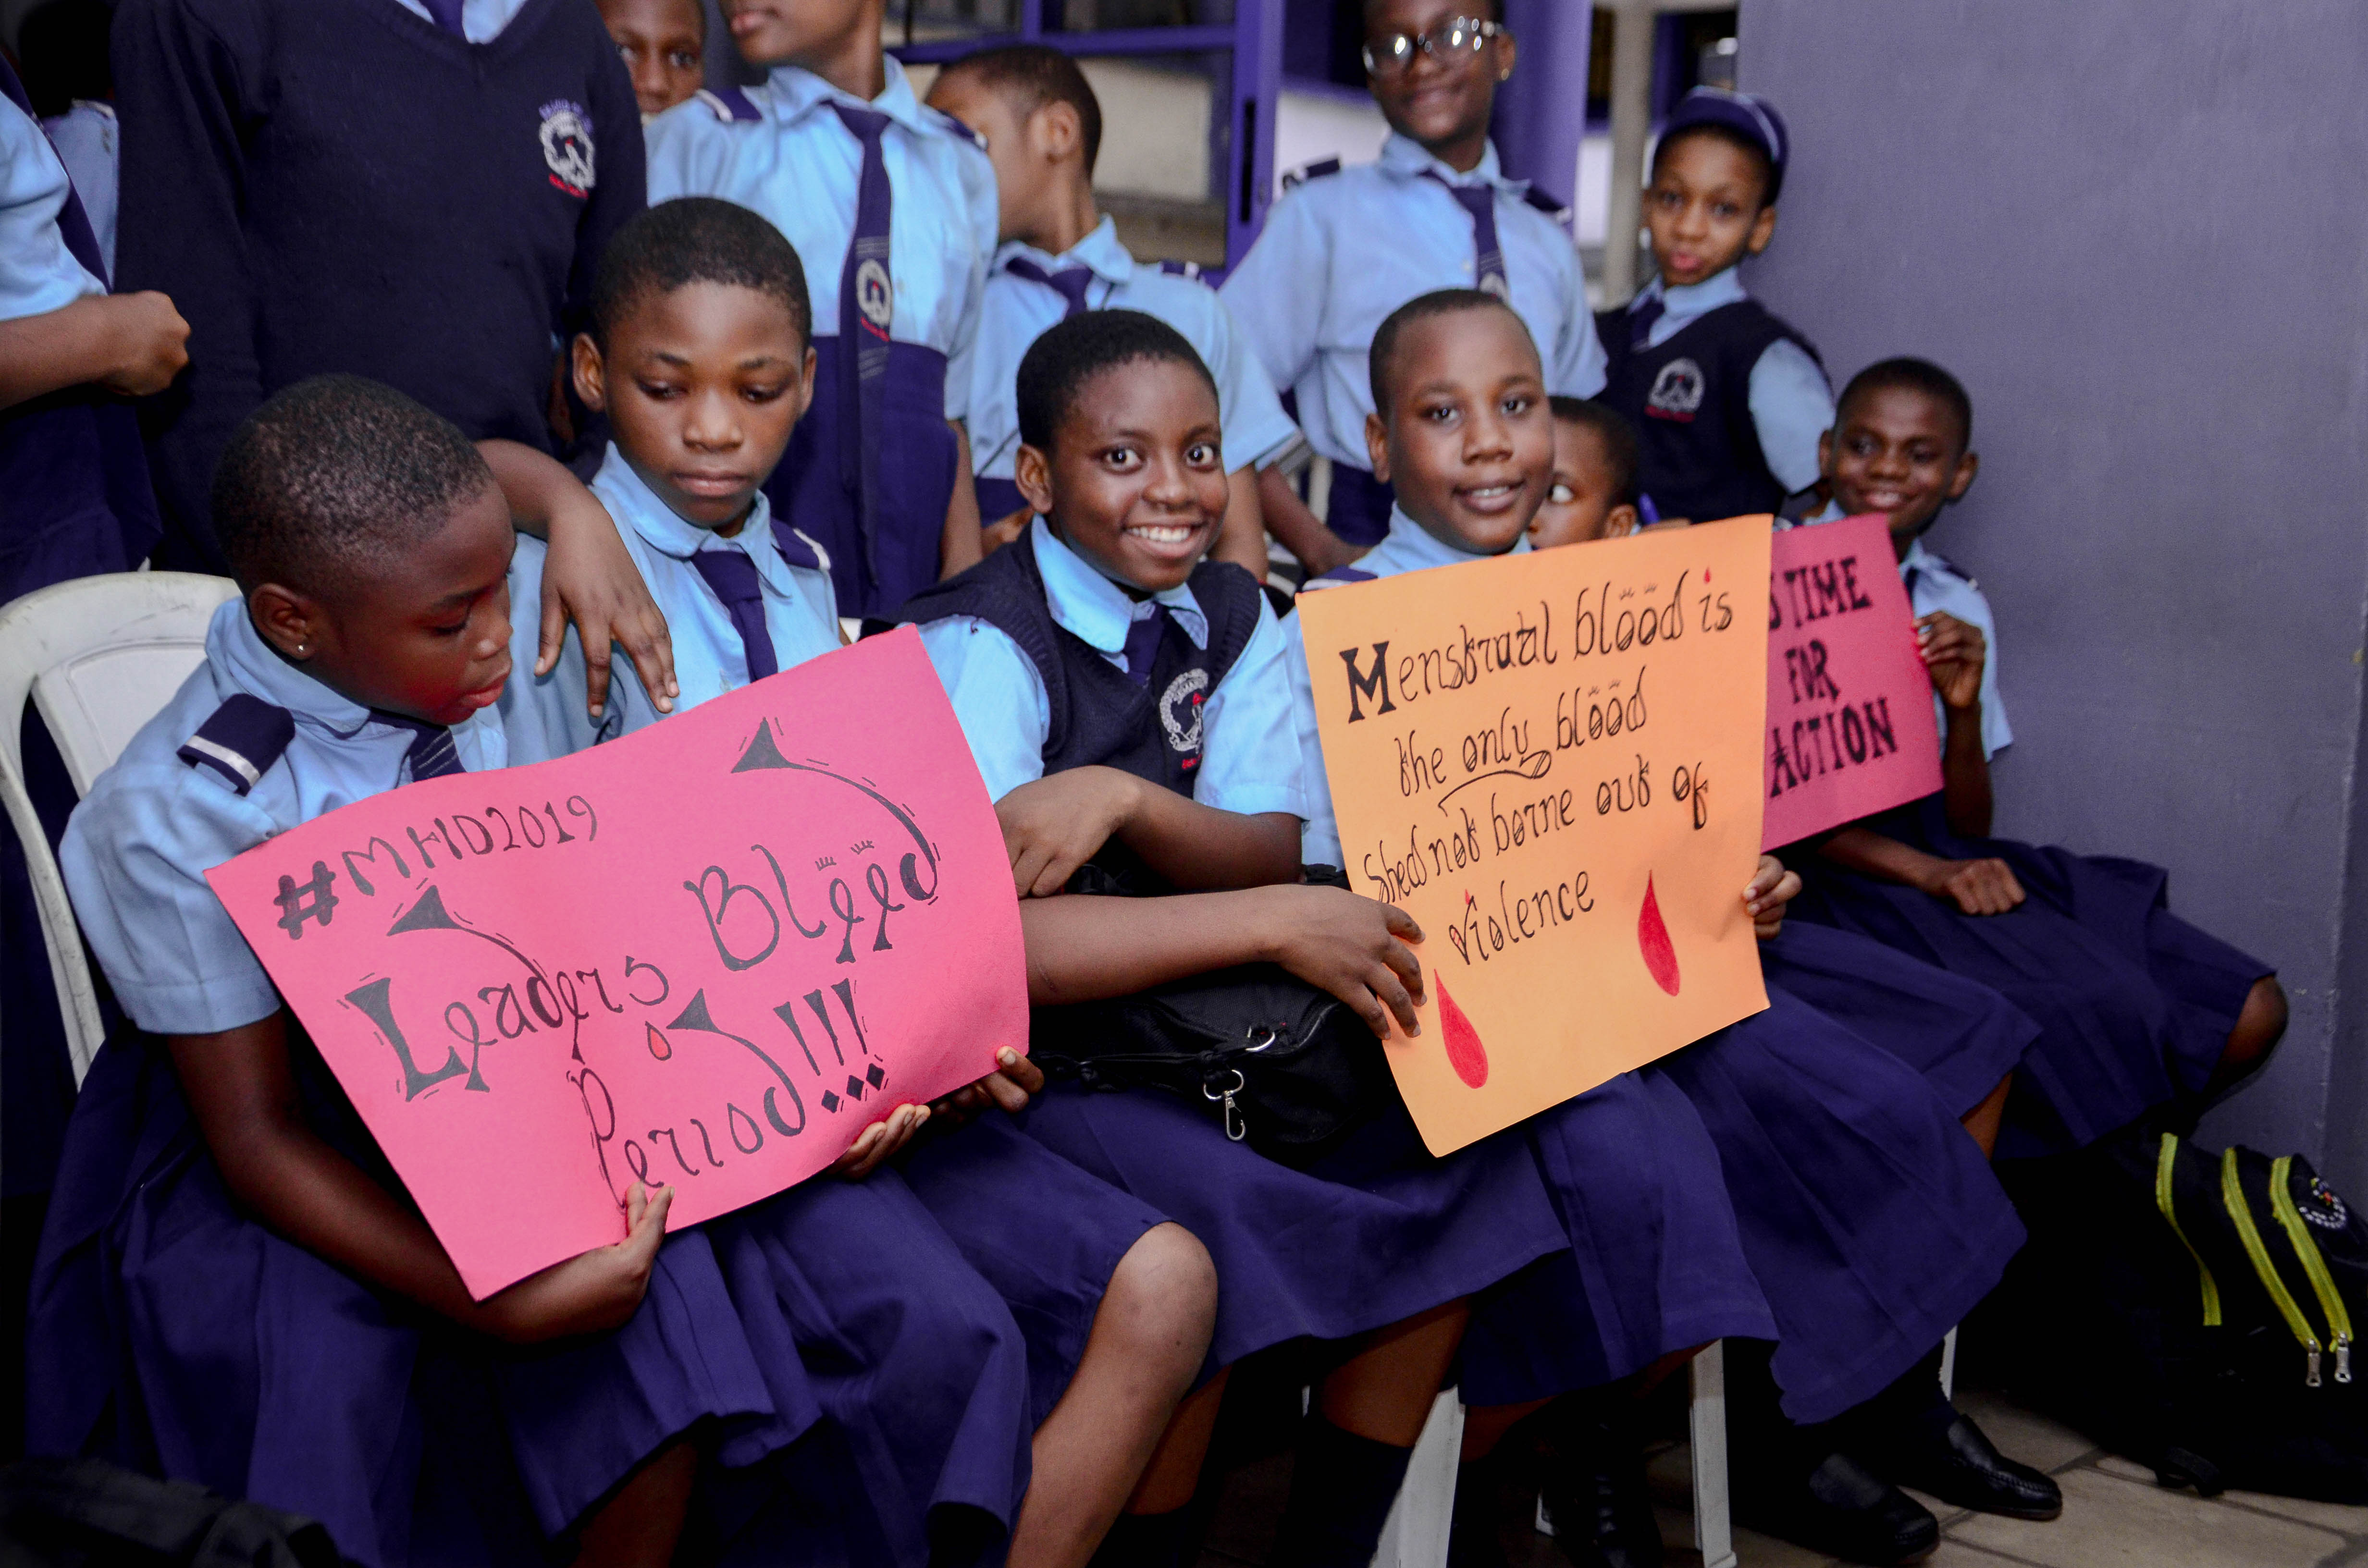 #MHD2019
Leaders Bleed
Period!!!
Menstrual blood is
the only blood
shed not borne out of
violence
TIME
FOR
ACTION